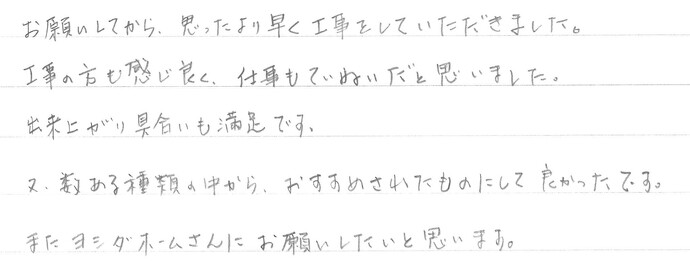 お願いしてから、思ったより早く工事をしていただきました。
工事の方も感じ良く、仕事もていねいだと思いました。
出来上がり具合いも満足です。
又、数ある種類の中から、おすすめされたものにして良かったです。
またヨシダホームさんにお願いしたいと思います。